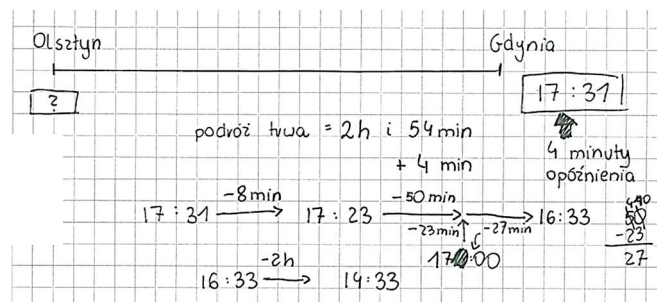 Olsztyn Gdynia
? 17:31
podróż trwa = 2h i 54 min
+ 4 min
4 minuty
opóźnienia
17:31 -8min 17:23 -50 min -27min 16:33
-23min
17:00
4 10
50
-23
27
16:33 -2h 14:33